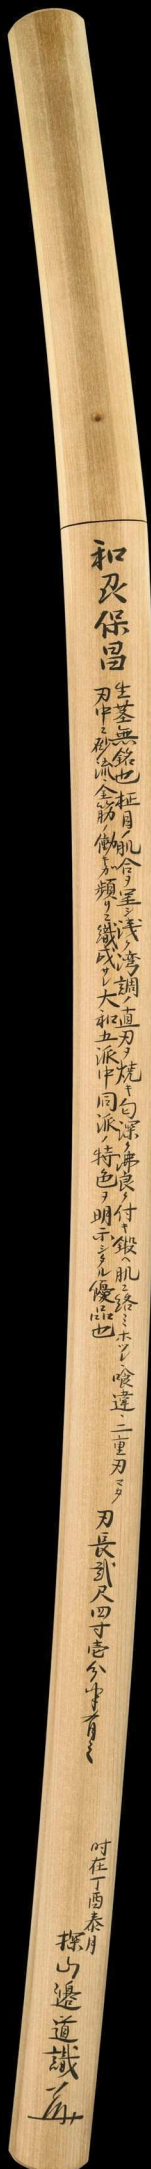 和州保昌
生茎無銘也 柾目肌合ヲ呈シ浅ク湾調ノ直刃ヲ焼キ匂深ク沸良ク付キ鍛ヘ肌ニ絡ミホツレ喰違ニ重刃マタ
刃中ニ砂流金筋ノ働キガ頻リニ織成サレ大和五派中同派ノ特色ヲ明示シタル優品也
刃長貳尺四寸壱分半有之
时在丁酉泰月
探山邉道識